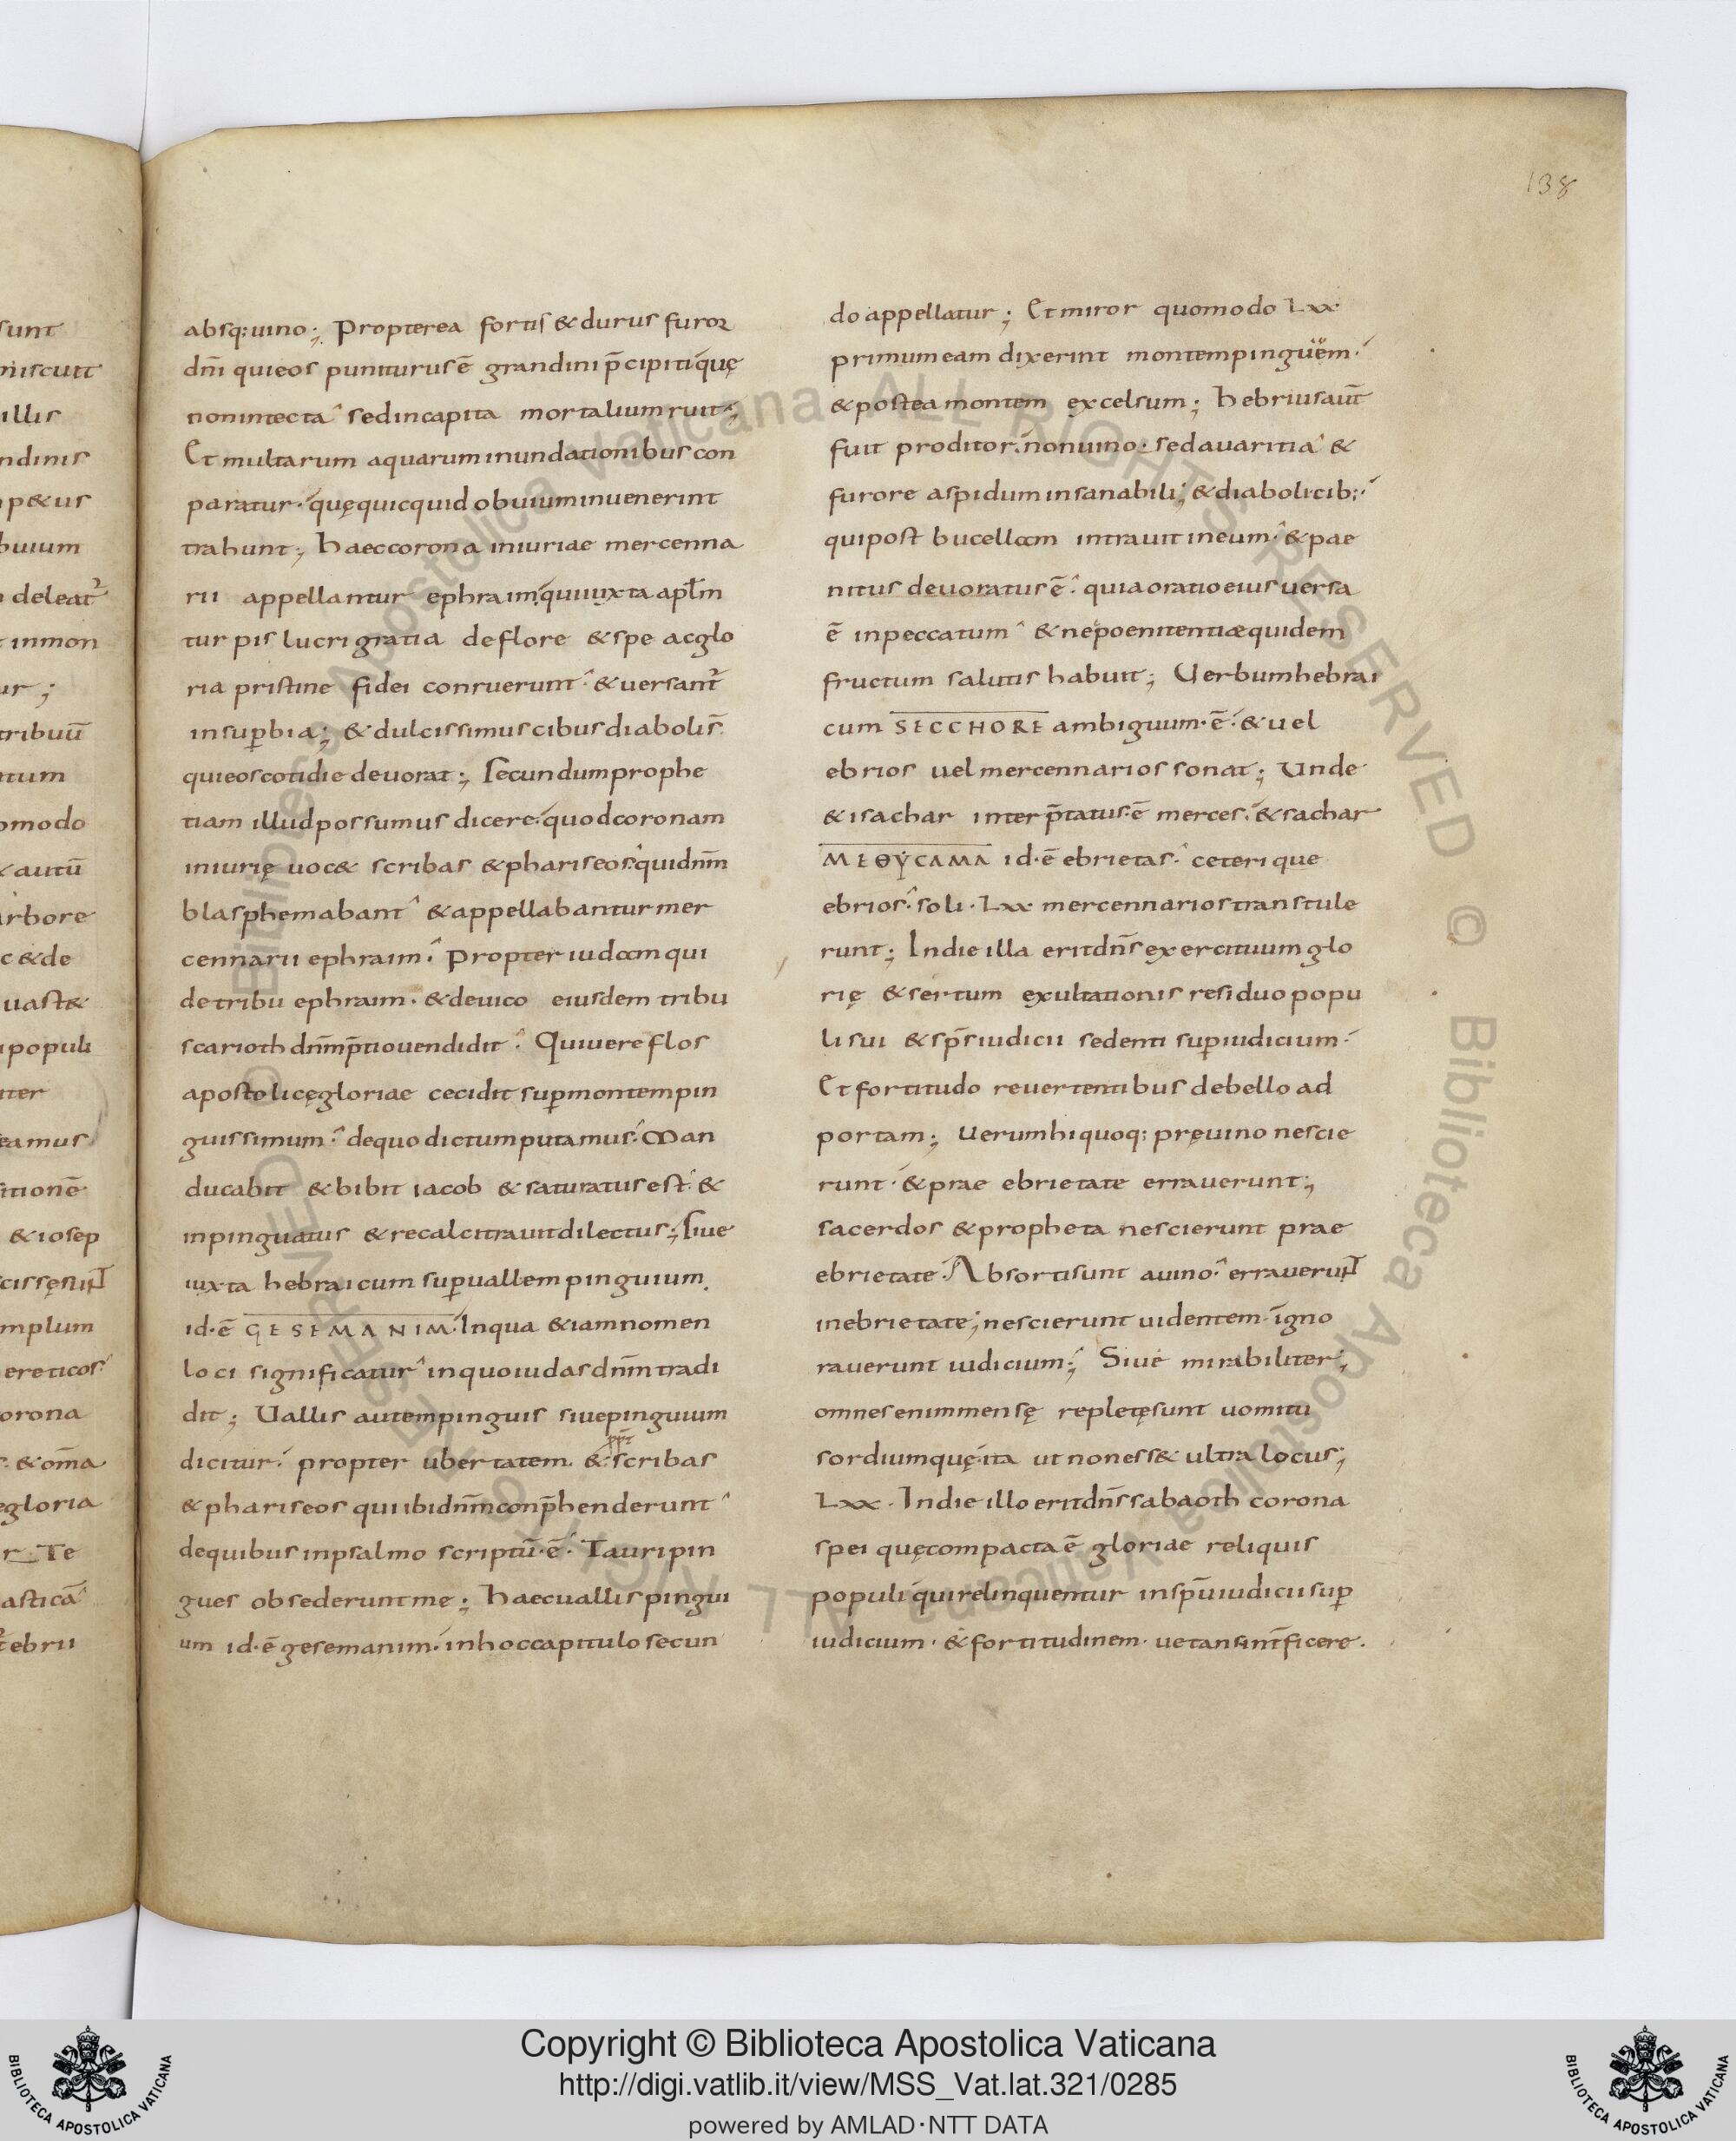 138
sunt
miscuit
illis
ndinis
p&us
buium
deleat᷑
inmon
ur;
tribuū
ntum
omodo
autū
arbore
c &de
uast&
populi
iter
eamus
sitionē
& iosep
cissęsunt
mplum
ereticos
orona
& om̄a
egloria
r. Te
asticā
ebrii
absq: uino; Propterea fortis & durus furor
dn̄i quieos puniturus ē grandini p̄cipiti quę
nonintecta sedincapita mortalium ruit;
Et multarum aquarum inundationibus con
paratur. quęquicquid obuium inuenerint
trahunt; haec corona iniuriae mercenna
rii appellantur ephraim. qui iuxta apl̄m
turpis lucri gratia deflore & spe ac glo
ria pristine fidei conruerunt. & uersant᷑
insup̄bia; & dulcissimus cibus diaboli s̄.
quieos cotidie deuorat; Secundum prophe
tiam illud possumus dicere. quod coronam
iniurię uoc& scribas & phariseos. qui dn̄m
blasphemabant & appellabantur mer
cennarii ephraim. Propter iudam qui
detribu ephraim. & deuico eiusdem tribu
scarioth dn̄m p̄tio uendidit. Qui uere flos
apostolicę gloriae cecidit sup̄ montem pin
guissimum. dequo dictum putamus. Man
ducabit & bibit iacob & saturatus est. &
inpinguatus & recalcitrauit dilectus; Siue
iuxta hebraicum sup̄ uallem pinguium.
id. ē GESEMANIM. Inqua & iam nomen
loci significatur inquo iudas dn̄m tradi
dit; Uallis autem pinguis siue pinguium
dicitur. propter ubertatem. & pp̄t scribas
& phariseos qui ibi dn̄m conp̄henderunt
dequibus inpsalmo scriptū. ē. Tauri pin
gues obsederunt me; haec uallis pingui
um id. ē gesemanim. inhoc capitulo secun
do appellatur; Et miror quomodo Lxx
primum eam dixerint montem pinguem.
& postea montem excelsum; hebrius aut̄
fuit proditor. nonuino. sed auaritia &
furore aspidum insanabili; & diaboli cib;.
qui post bucellam intrauit ineum. & pae
nitus deuoratus ē. quia oratio eius uersa
ē inpeccatum & nepoenitentiae quidem
fructum salutis habuit; Uerbum hebrai
cum SECCHORE ambiguum. ē. & uel
ebrios uel mercennarios sonat; Unde
& isachar interp̄tatus. ē merces. & sachar
ΜΕΘΥCΑΜΑ id. ē ebrietas. ceterique
ebrios. soli. Lxx mercennarios transtule
runt; Indie illa erit dn̄s exercituum glo
rię & sertum exultationis residuo popu
li sui & sp̄s iudicii sedenti sup̄ iudicium.
Et fortitudo reuertentibus debello ad
portam; uerum hi quoq: pręuino nescie
runt. & prae ebrietate errauerunt;
sacerdos & propheta nescierunt prae
ebrietate. Absorti sunt auino. errauerunt
inebrietate; nescierunt uidentem. igno
rauerunt iudicium; Siue mirabiliter;
omnes enim mensę repletę sunt uomitu
sordiumquę. ita ut non ess& ultra locus;
Lxx. Indie illo erit dn̄s sabaoth corona
spei quę compacta ē gloriae reliquis
populi qui relinquentur insp̄u iudicii sup̄
iudicium. & fortitudinem. uetans int̄ficere.
Copyright © Biblioteca Apostolica Vaticana
http://digi.vatlib.it/view/MSS_Vat.lat.321/0285
powered by AMLAD·NTT DATA
BIBLIOTECA APOSTOLICA VATICANA
BIBLIOTECA APOSTOLICA VATICANA